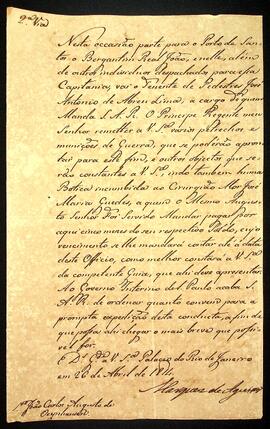 2.ª Via
Nesta occasião parte para o Porto de San-
tos o Bergantim Real João, e nelle, alem
de outros individuos despachados para essa
Capitania, vai o Tenente de Pedestres José
Antonio de Abreu Lima, a cargo de quem
Manda S. A. R. O Principe Regente meu
Senhor remetter a V. S.ª varios petrechos e
munições de Guerra, que se poderão apromp-
tar para este fim, e outros objectos que se-
rão constantes a V. S.ª indo tambem huma
Botica incumbida ao Cirurgião Mor José
Maria Guedes, a quem o Mesmo Augus-
to Senhor Foi Servido Mandar pagar por
aqui cinco mezes do seu respectivo Soldo, cujo
vencimento se lhe mandará contar até a data
deste Officio, como melhor constará a V. S.ª
da competente Guia, que ahi deve apresentar.
Ao Governo Interino de S. Paulo acaba S.
A. R. de ordenar quanto convem para a
prompta expedição desta conducta, a fim de
que possa ahi chegar o mais breve que pos-
sivel for.
D.s G.e a V. S.ª Palacio do Rio de Janeiro
em 26 de Abril de 1814.
Marquez de Aguiar
S.r João Carlos Augusto de
Oeynhausen